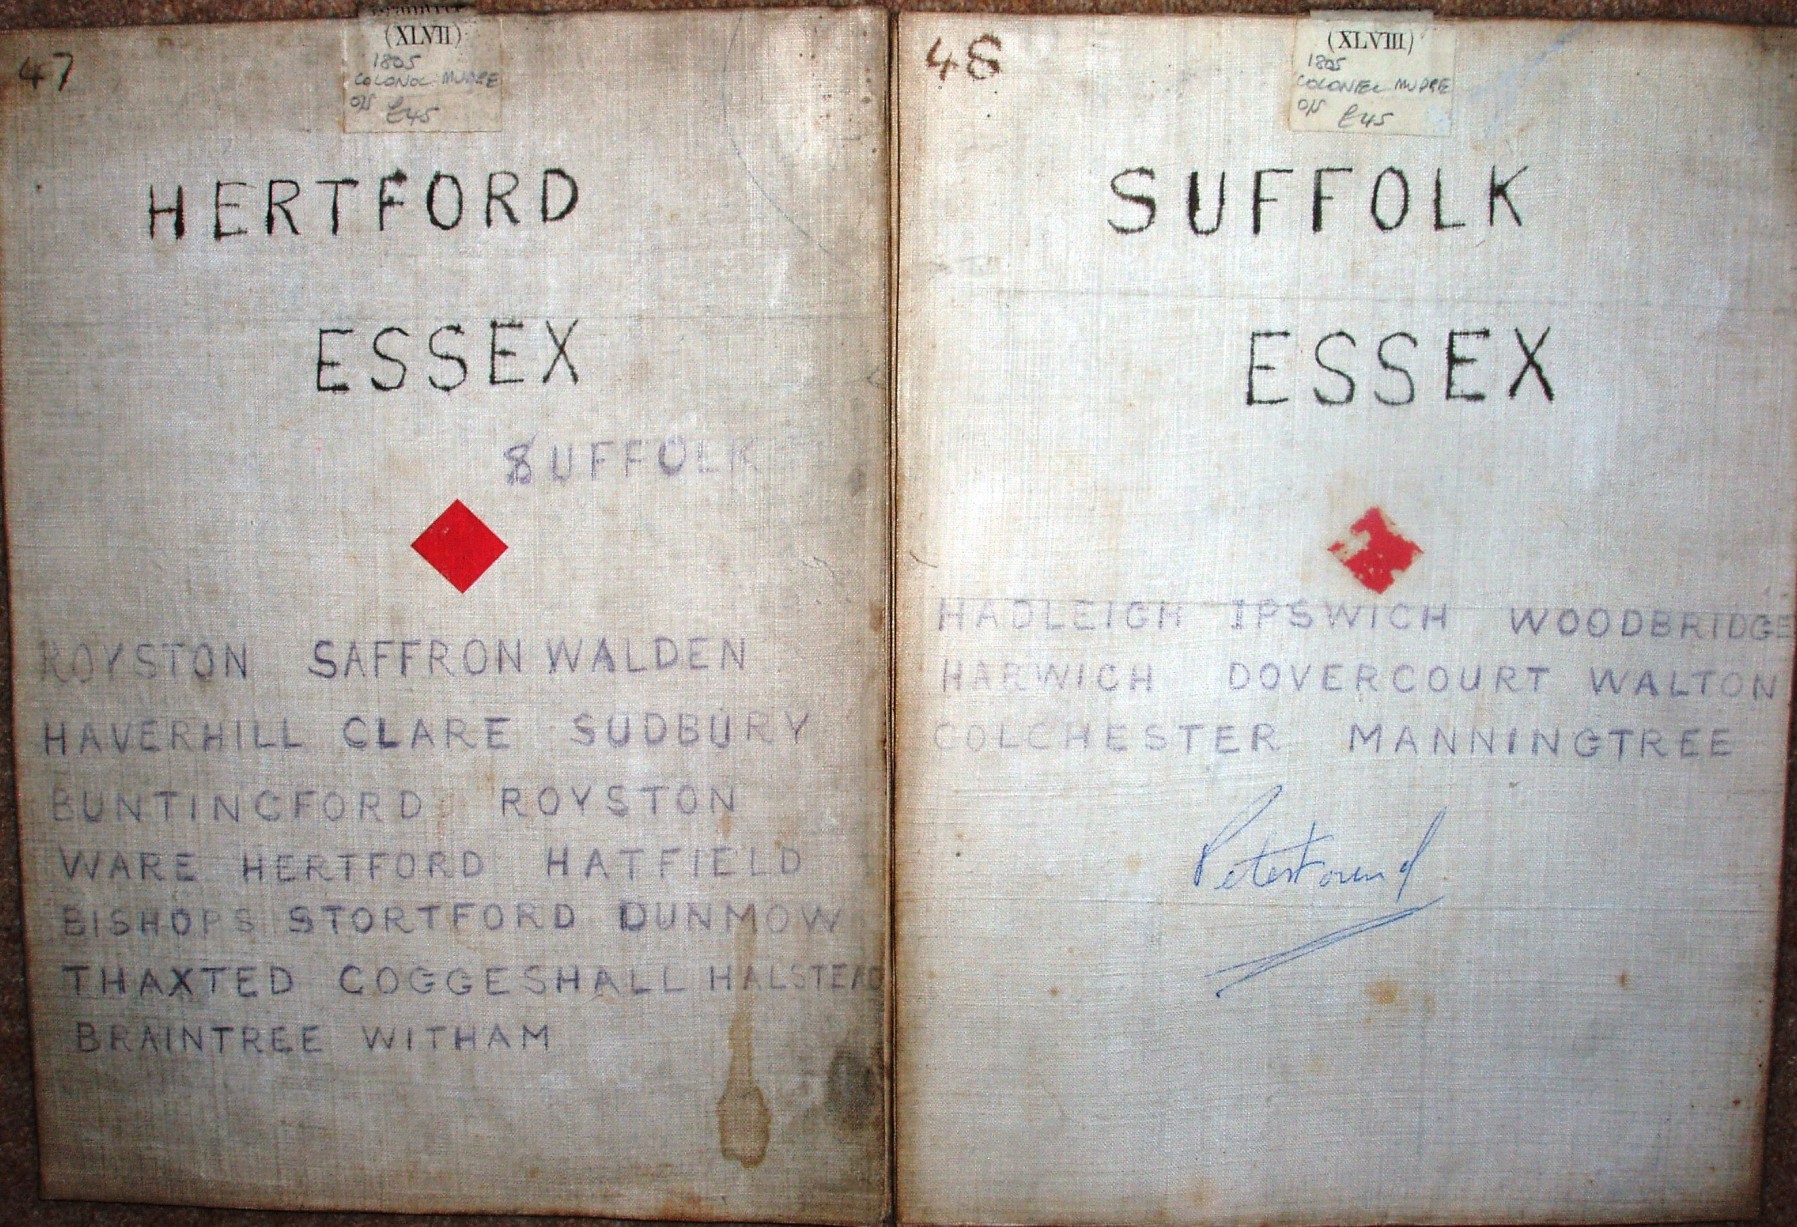 47
(XLVII)
1805
COLONOL MUDGE
O/S £45
HERTFORD
ESSEX
SUFFOLK
ROYSTON SAFFRON WALDEN
HAVERHILL CLARE SUDBURY
BUNTINGFORD ROYSTON
WARE HERTFORD HATFIELD
BISHOPS STORTFORD DUNMOW
THAXTED COGGESHALL HALSTEAD
BRAINTREE WITHAM
48
(XLVIII)
1805
COLONEL MUDGE
O/S £45
SUFFOLK
ESSEX
HADLEIGH IPSWICH WOODBRIDGE
HARWICH DOVERCOURT WALTON
COLCHESTER MANNINGTREE